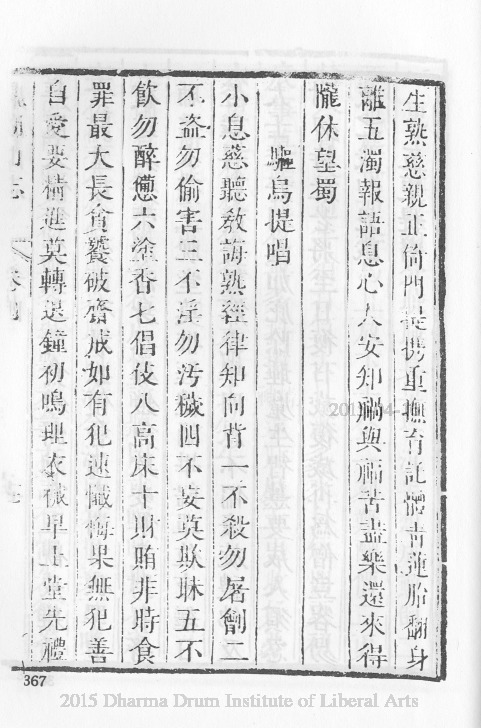 生熟慈親正倚門是携重撫育託體青蓮胎翻身
離五濁報語息心人安知禍與福苦盡樂還來得
隴休望蜀
驅烏提唱
小息慈聽教誨熟經律知向背一不殺勿屠劊二
不盜勿偷害三不淫勿汚穢四不妄莫欺昧五不
飲勿醉憊六塗香七倡伎八高床十財賄非時食
罪最大長貪饕破齋戒如有犯速懺悔果無犯善
自愛要精進莫轉退鐘初鳴理衣襪早上堂先禮
367
2015 Dharma Drum Institute of Liberal Arts